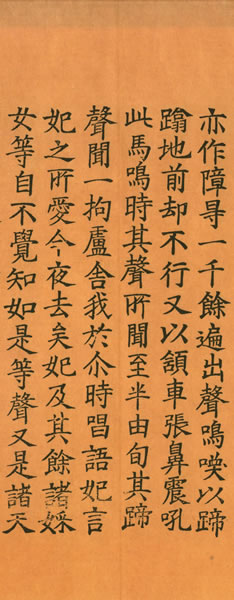 亦作障㝵一千餘遍出聲鳴喚以蹄
蹹地前却不行又以頷車張鼻震吼
此馬鳴時其聲所聞至半由旬其蹄
聲聞一拘盧舍我於尒時唱語妃言
妃之所愛今夜去矣妃及其餘諸婇
女等自不覺知如是等聲又是諸天